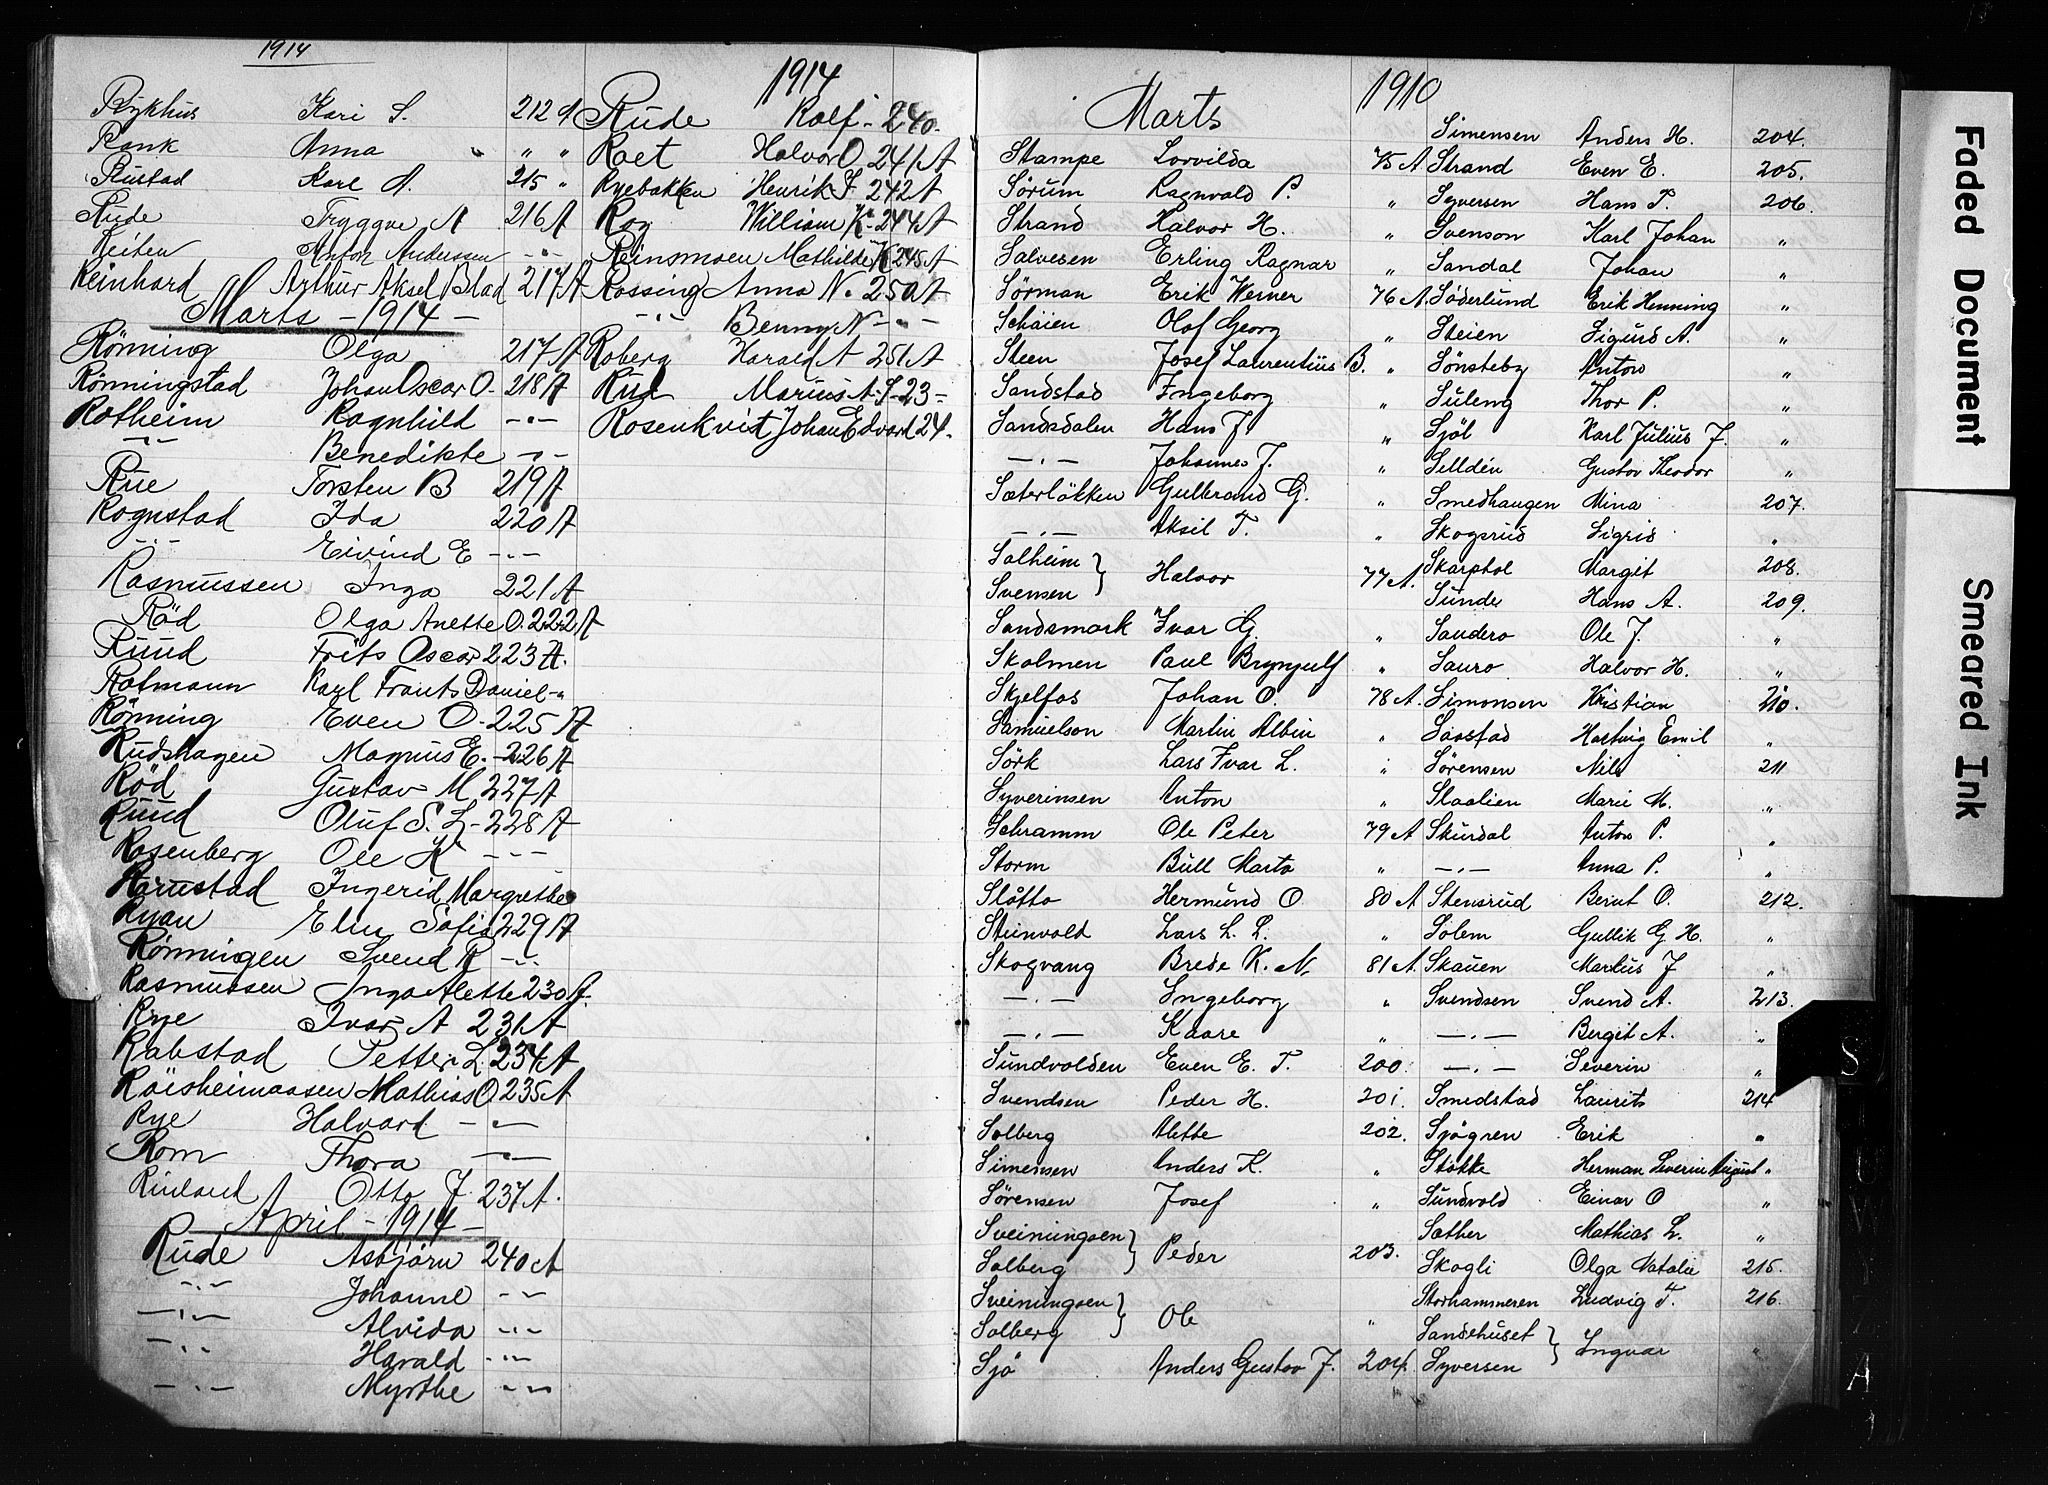 1914
Rykhus Kari S. 212 A
Rank Anna " "
Rustad Karl A. 215 "
Rude Tryggve A 216 A
Reiten Anton Anderssen - " -
Reinhard Arthur Aksel Blad 217 A
Marts - 1914 -
Rönning Olga 217 A
Rönningstad Johan Oscar O. 218 A
Rotheim Ragnhild - " -
- " - Benedikte - " -
Rue Torsten B 219 A
Rognstad Ida 220 A
- " - Eivind E - " -
Rasmussen Inga 221 A
Röd Olga Anette O. 222 A
Ruud Frits Oscar 223 A.
Ratmann Karl Frants Daniel - "
Rönning Even O - 225 A
Rudshagen Magnus E. - 226 A
Röd Gustav M 227 A
Ruud Oluf S. L - 228 A
Rosenberg Ole K - " -
Harustad Ingerid Margrethe
Ryan Elin Sofia 229 A
Rönningen Svend R - " -
Rasmussen Inga Alette 230 A.
Rye Ivar A 231 A
Rabstad Petter L 234 A
Röisheimaasen Mathias O 235 A
Rye Halvard - " -
Rom Thora - " -
Otto J 237 A.
April - 1914 -
Rude Asbjörn 240 A
- " - Johanne - " -
- " - Alvida - " -
- " - Harald - " -
- " - Myrthe - " -
1914
Rude Rolf - 240 -
Roet Halvor O. 241 A
Ryebakken Henrik J. 242 A
Roy William K - 244 A
Reinsmoen Mathilde K 245 A
Rossing Anna N. 250 A
- " - Benny N - " -
Roberg Harald A 251 A
Rud Marius A. S - 23 -
Rosenkvist Johan Edvard 24.
Marts 1910
Stampe Lovvilda 75 A
Sörum Ragnvald P. "
Strand Halvor H. "
Salvesen Erling Ragnar "
Sörman Erik Werner 76 A
Schöien Olaf Georg "
Steen Josef Laurentius B. "
Sandstad Ingeborg "
Sandsdalen Hans J "
- " - Johannes J. "
Sæterlökken Gulbrand G. "
- " - Aksil T. "
Solheim } Halvor 77 A.
Svensen }
Sandsmark Ivar G. "
Skalmen Paul Brynjulf "
Skjelfos Johan O. 78 A.
Samuelson Martin Albin "
Sörk Lars Ivar L. "
Syverinsen Anton "
Schramm Ole Peter 79 A
Storm Bull Marta "
Slåtto Hermund O. 80 A
Steinvold Lars L. L. "
Skogvang Brede K. N. 81 A
- " - Ingeborg "
- " - Kaare "
Sundvolden Even E. T. 200.
Svendsen Peder H. 201.
Solberg Alette 202.
Simensen Anders K. "
Sörensen Josef "
Sveinungsen } Peder 203.
Solberg }
Sveinungsen } Ole "
Solberg }
Sjö Anders Gustav J. 204.
Simensen Anders H. 204.
Strand Even E. 205.
Syversen Hans P. 206.
Svenson Karl Johan "
Sandal Johan "
Söderlund Erik Henning "
Steien Sigurd A. "
Sönsteby Anton "
Suleng Thor P. "
Sjöl Karl Julius J. "
Selldén Gustav Theodor "
Smedhaugen Mina 207.
Skogsrud Sigrid "
Skarphol Margit 208.
Sunde Hans A. 209.
Sandero Ole J. "
Sauro Halvor H. "
Simonsen Kristian 210.
Saastad Hartvig Emil "
Sörensen Nils 211
Slaalien Marie M. "
Skurdal Anton P. "
- " - Anna P. "
Stensrud Bernt O. 212.
Solem Gullik G H. "
Skauen Markus J "
Svendsen Svend A. 213.
- " - Bergit A. "
- " - Severin "
Smedstad Laurits 214
Sjögren Erik "
Stötte Herman Severin August "
Sundvold Einar O "
Sæther Mathias L. "
Skogli Olga Natalie 215.
Storhammeren Ludvig T. 216.
Sandehuset } Ingvar "
Syversen }
Faded Document
Smeared Ink
S